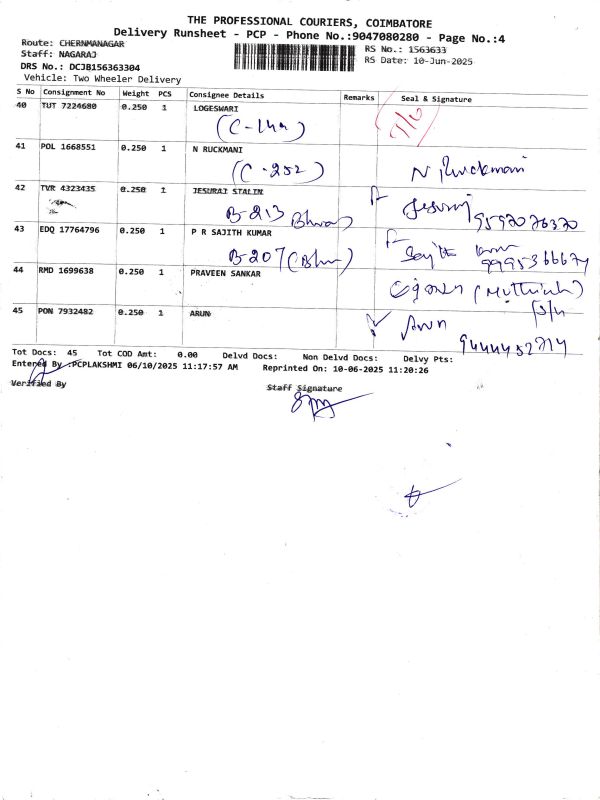 THE PROFESSIONAL COURIERS, COIMBATORE
Delivery Runsheet - PCP - Phone No.:9047080280 - Page No.:4
Route: CHERNMANAGAR
RS No.: 1563633
Staff: NAGARAJ
RS Date: 10-Jun-2025
DRS No.: DCJB156363304
Vehicle: Two Wheeler Delivery
S No Consignment No Weight PCS Consignee Details Remarks Seal & Signature
40 TUT 7224680 0.250 1 LOGESWARI
41 POL 1668551 0.250 1 N RUCKMANI
(C-252) N Ruckmani
42 TVR 4323435 0.250 1 JESURAJ STALIN
B-213
43 EDQ 17764796 0.250 1 P R SAJITH KUMAR
B-207
44 RMD 1699638 0.250 1 PRAVEEN SANKAR
45 PON 7932482 0.250 1 ARUN
Arun
9444452714
Tot Docs: 45 Tot COD Amt: 0.00 Delvd Docs: Non Delvd Docs: Delvy Pts:
Entered By :PCPLAKSHMI 06/10/2025 11:17:57 AM Reprinted On: 10-06-2025 11:20:26
Verified By Staff Signature